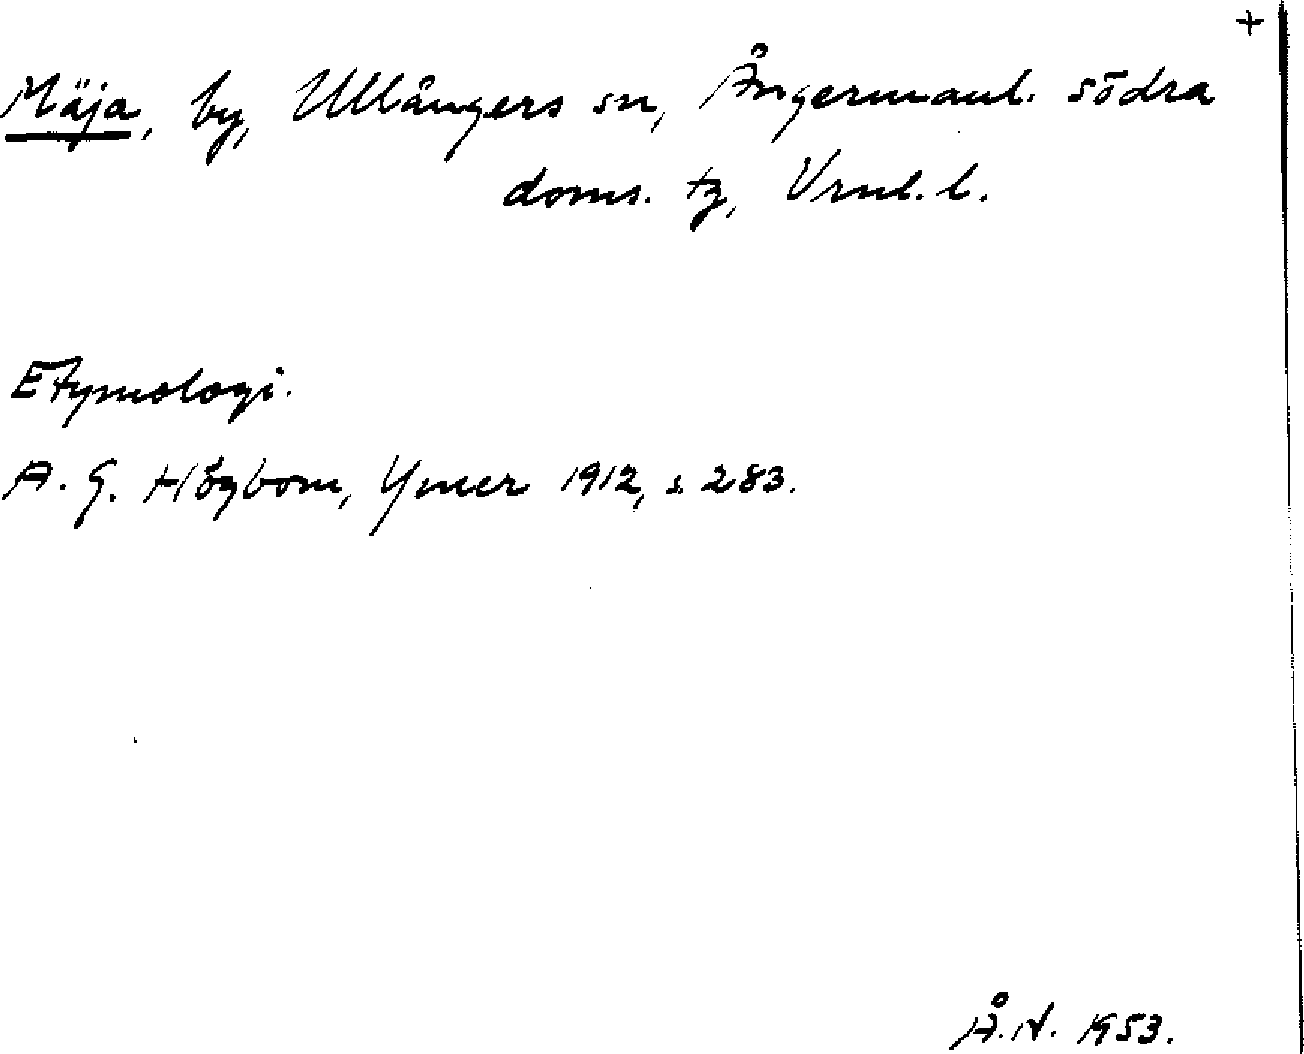 +
Mäja, by, Ullångers sn, Ångermanl. södra
doms. tg, Vrnl. l.
Etymologi.
A. G. Högbom, Ymer 1912, s. 283.
Å.N. 1953.